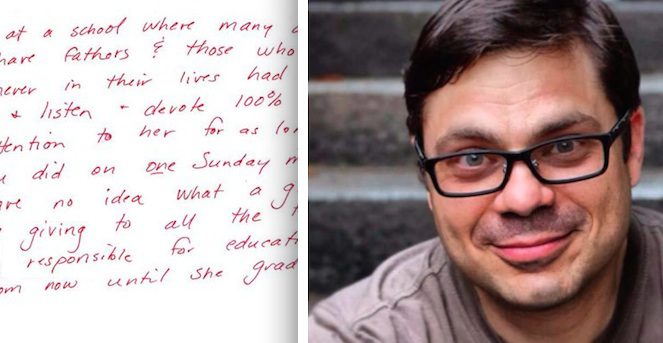 at a school where many
have fathers & those who
never in their lives had
& listen + devote 100%
attention to her for as
did on one Sunday
no idea what a
giving to all the
responsible for
from now until she